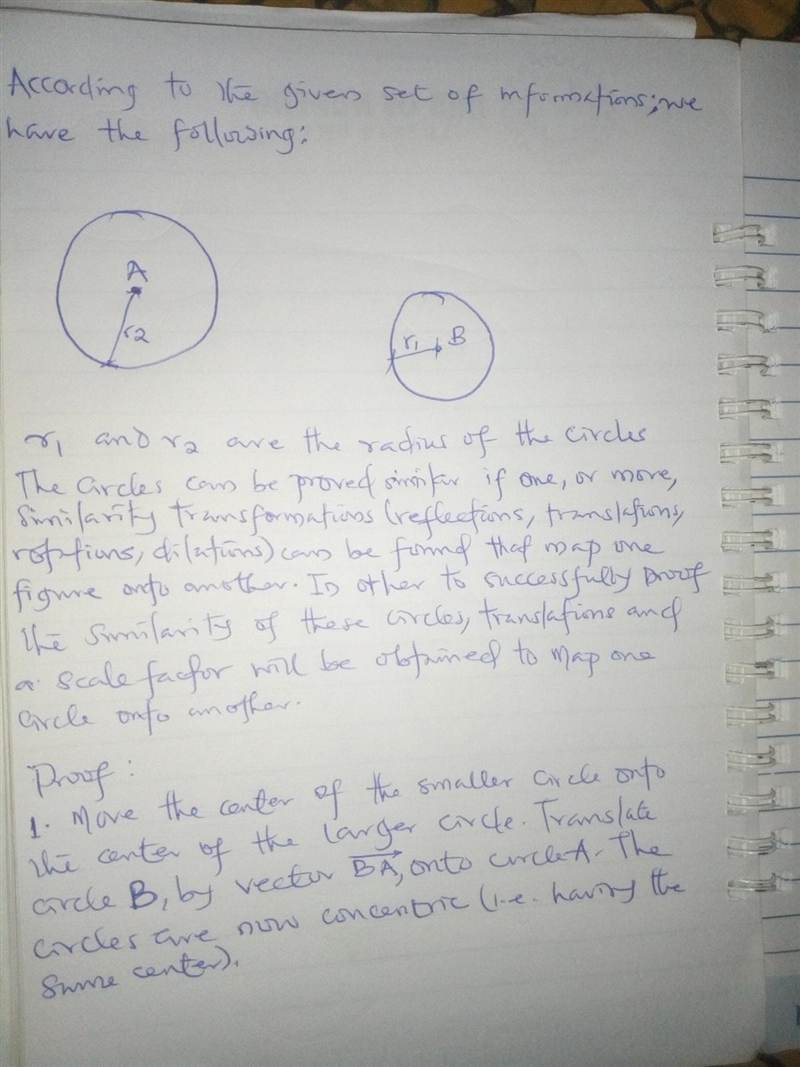 According to the given set of informations; we
have the following:
A
r2
r1
B
r1 and r2 are the radius of the circles
The circles can be proved similar if one, or more,
similarity transformations (reflections, translations,
rotations, dilations) can be found that map one
figure onto another. In other to successfully proof
the similarity of these circles, translations and
a scale factor will be obtained to map one
circle onto another.
Proof:
1. Move the center of the smaller circle onto
the center of the larger circle. Translate
circle B, by vector BA, onto circle A. The
circles are now concentric (i.e. having the
same center).